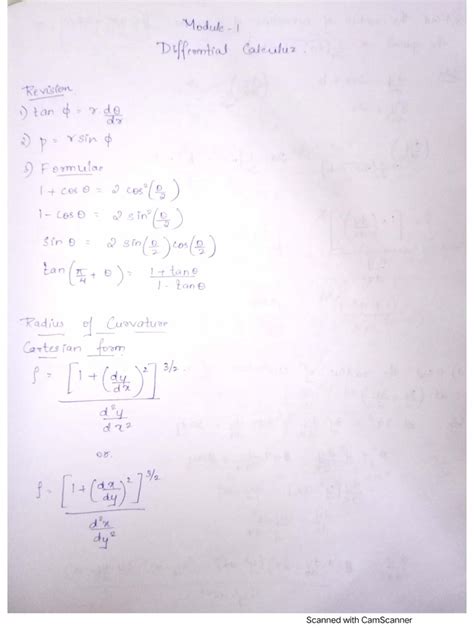 Module - 1
Differential Calculus.
Revision
1) tan φ = r dθ/dr
2) p = r sin φ
3) Formulae
1 + cos θ = 2 cos²(θ/2)
1 - cos θ = 2 sin²(θ/2)
sin θ = 2 sin(θ/2) cos(θ/2)
tan(π/4 + θ) = 1 + tan θ / 1 - tan θ
Radius of Curvature
Cartesian form
ρ = [1 + (dy/dx)²]^3/2 / d²y/dx²
or.
ρ = [1 + (dx/dy)²]^3/2 / d²x/dy²
Scanned with CamScanner